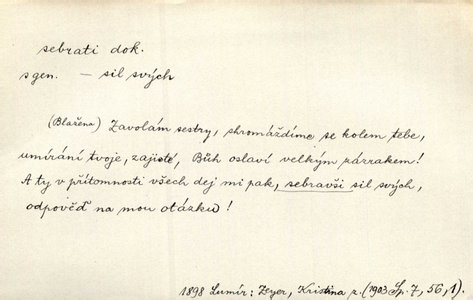 sebrati dok.
s gen. — sil svých
(Blažena) Zavolám sestry, shromáždíme se kolem tebe,
umírání tvoje, zajisté, Bůh oslaví velkým zázrakem!
A ty v přítomnosti všech dej mi pak, sebravši sil svých,
odpověď na mou otázku!
1898 Lumír: Zeyer, Kristina z. (1903 Sp. 7, 56, 1).